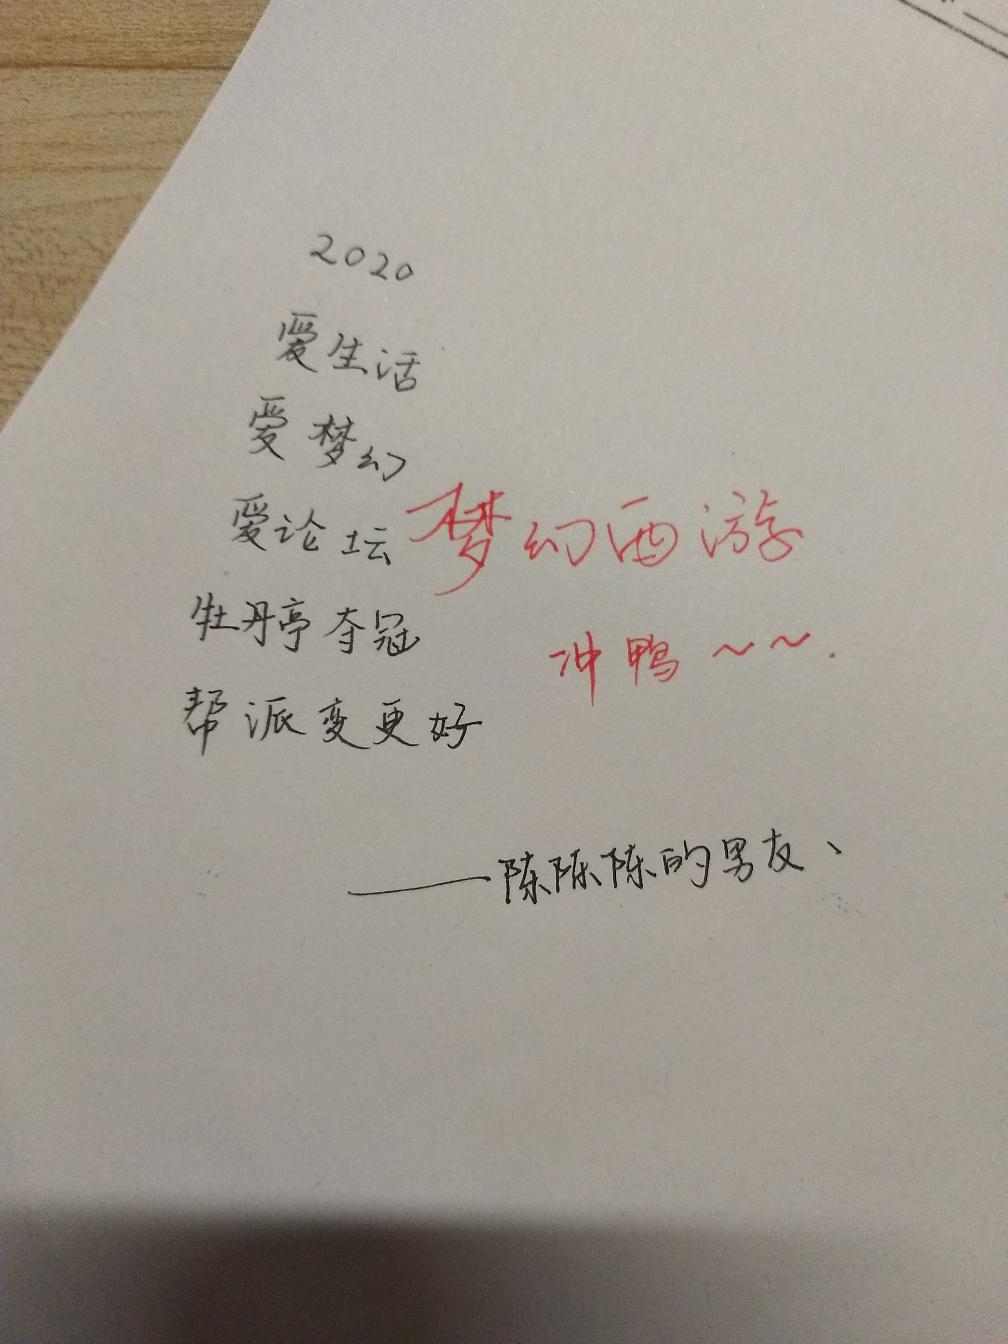 2020
爱生活
爱梦幻
爱论坛
梦幻西游
牡丹亭夺冠
冲鸭~~.
帮派变更好
——陈陈陈的男友、